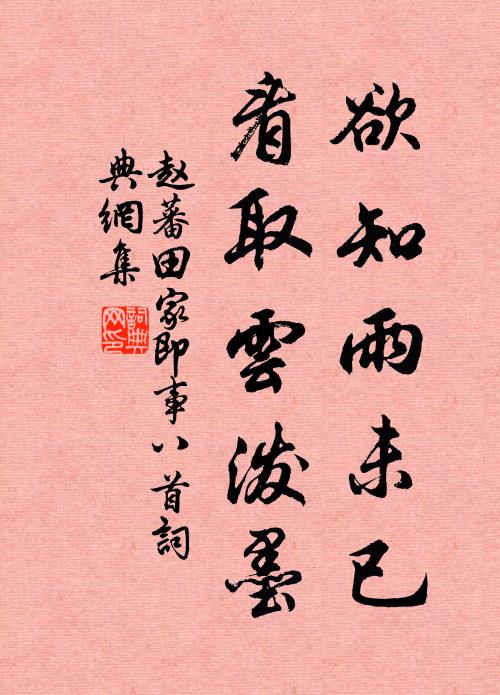 欲知雨未已
看取雲潑墨
赵蕃田家即事八首詞
典網集
詞典
网印